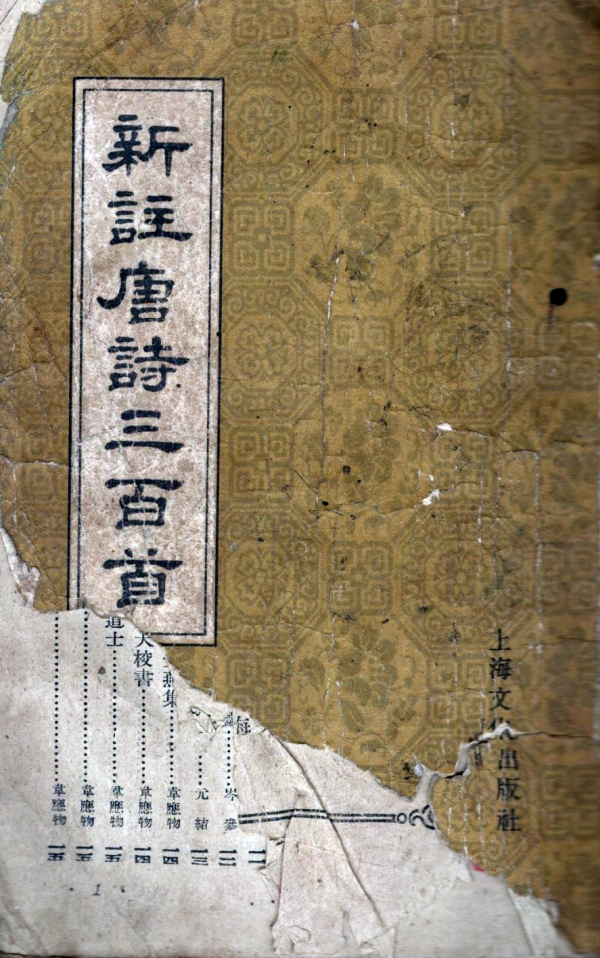 新註唐詩三百首
上海文化出版社
海
岑參 一二
元結 一三
燕集 韋應物 一四
天校書 韋應物 一四
道士 韋應物 一五
韋應物 一五
韋應物 一五
1